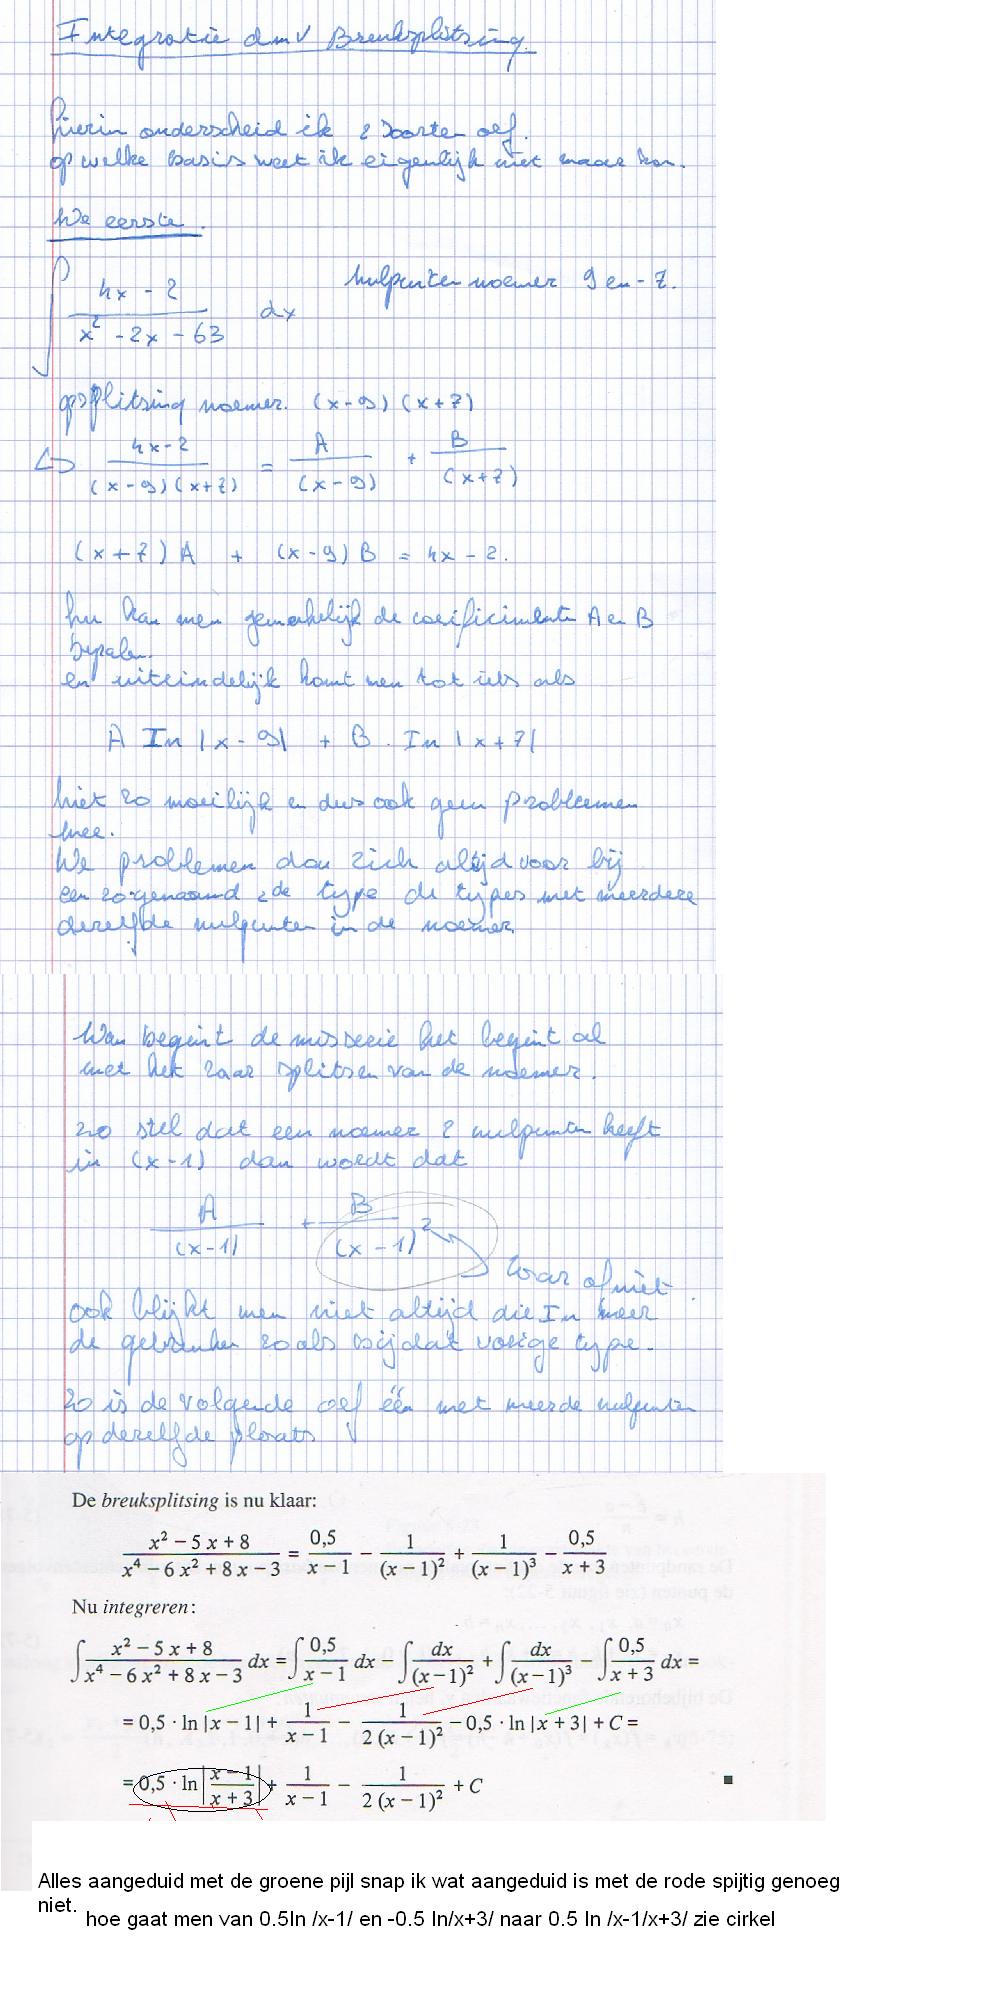 Integratie dmv Breuksplitsing.
hierin onderscheid ik 2 soorten oef.
op welke basis weet ik eigenlijk niet maar kon.
De eerste.
∫ (4x - 2)/(x² - 2x - 63) dx nulpunten noemer 9 en -7.
opsplitsing noemer. (x-9) (x+7)
↳ (4x-2)/((x-9)(x+7)) = A/(x-9) + B/(x+7)
(x+7) A + (x-9) B = 4x - 2.
nu kan men gemakelijk de coëificienten A en B
bepalen.
en uiteindelijk komt men tot iets als
A In |x-9| + B . In |x+7|
niet zo moeilijk en dus ook geen problemen
mee.
De problemen doen zich altijd voor bij
een zogenaamd 2de type de types met meerdere
dezelfde nulpunten in de noemer.
Dan begint de misserie het begint al
met het zaar splitsen van de noemer.
zo stel dat een noemer 2 nulpunten heeft
in (x-1) dan wordt dat
A/(x-1) + B/(x-1)²
waar of niet
ook blijkt men niet altijd die In meer
de gebruiken zoals bij dat vorige type.
zo is de volgende oef één met meerde nulpunten
op dezelfde plaats
De breuksplitsing is nu klaar:
(x² − 5x + 8)/(x⁴ − 6x² + 8x − 3) = 0,5/(x − 1) − 1/(x − 1)² + 1/(x − 1)³ − 0,5/(x + 3)
Nu integreren:
∫ (x² − 5x + 8)/(x⁴ − 6x² + 8x − 3) dx = ∫ 0,5/(x − 1) dx − ∫ dx/(x − 1)² + ∫ dx/(x − 1)³ − ∫ 0,5/(x + 3) dx =
= 0,5 · ln |x − 1| + 1/(x − 1) − 1/(2 (x − 1)²) − 0,5 · ln |x + 3| + C =
= 0,5 · ln |(x − 1)/(x + 3)| + 1/(x − 1) − 1/(2 (x − 1)²) + C
Alles aangeduid met de groene pijl snap ik wat aangeduid is met de rode spijtig genoeg
niet.
hoe gaat men van 0.5ln /x-1/ en -0.5 ln/x+3/ naar 0.5 ln /x-1/x+3/ zie cirkel